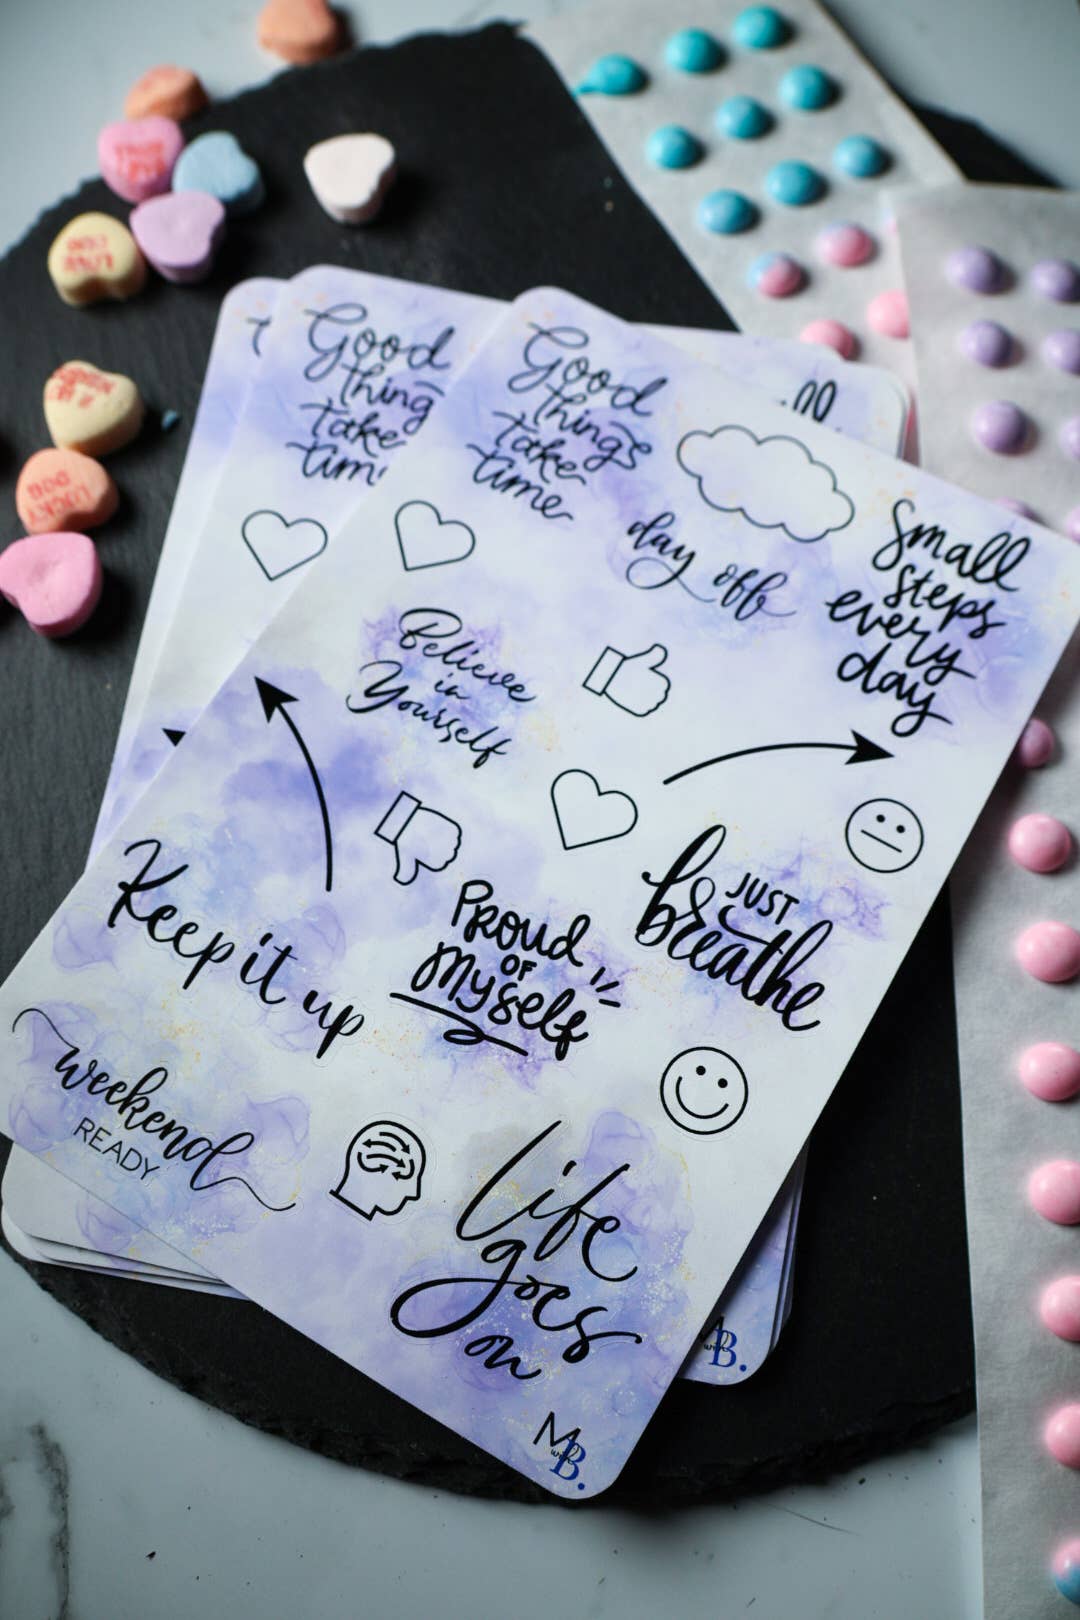 Good
things
take
time
Good
thing
take
Good
things
take
time
day off
Small
steps
every
day
Believe
in
Yourself
Keep it up
Proud
OF
myself
JUST
breathe
weekend
READY
Life
goes
on
M
with
B.
B.